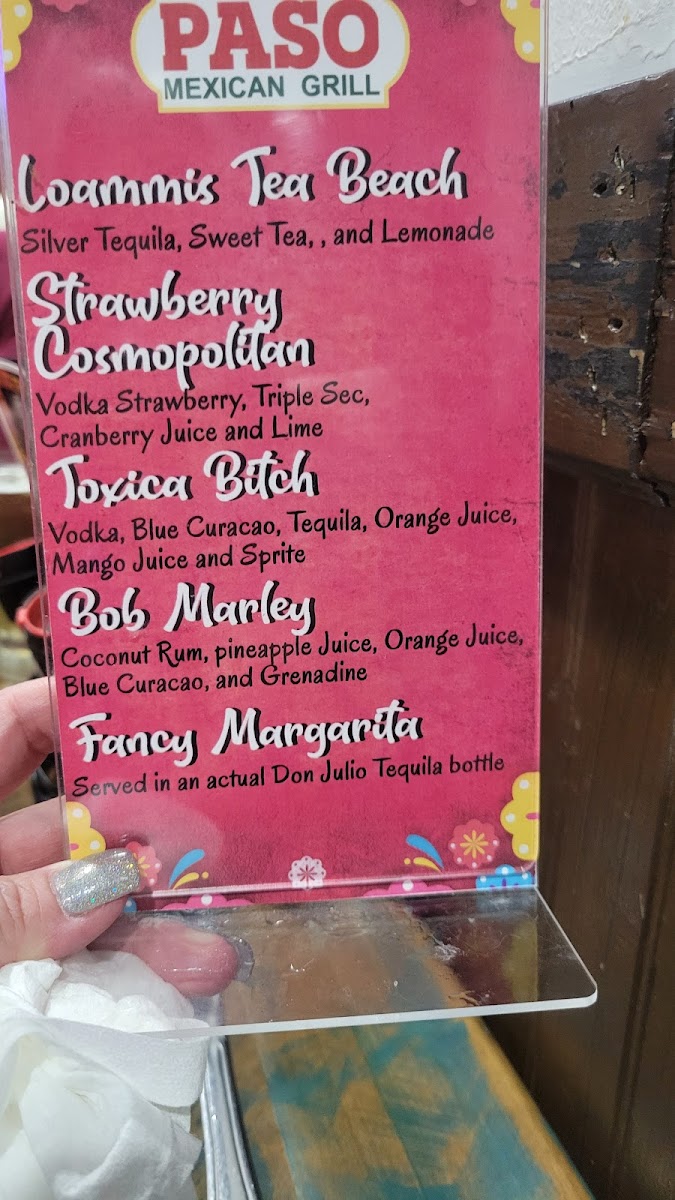 PASO
MEXICAN GRILL
Loammis Tea Beach
Silver Tequila, Sweet Tea, , and Lemonade
Strawberry
Cosmopolitan
Vodka Strawberry, Triple Sec,
Cranberry Juice and Lime
Toxica Bitch
Vodka, Blue Curacao, Tequila, Orange Juice,
Mango Juice and Sprite
Bob Marley
Coconut Rum, pineapple Juice, Orange Juice,
Blue Curacao, and Grenadine
Fancy Margarita
Served in an actual Don Julio Tequila bottle